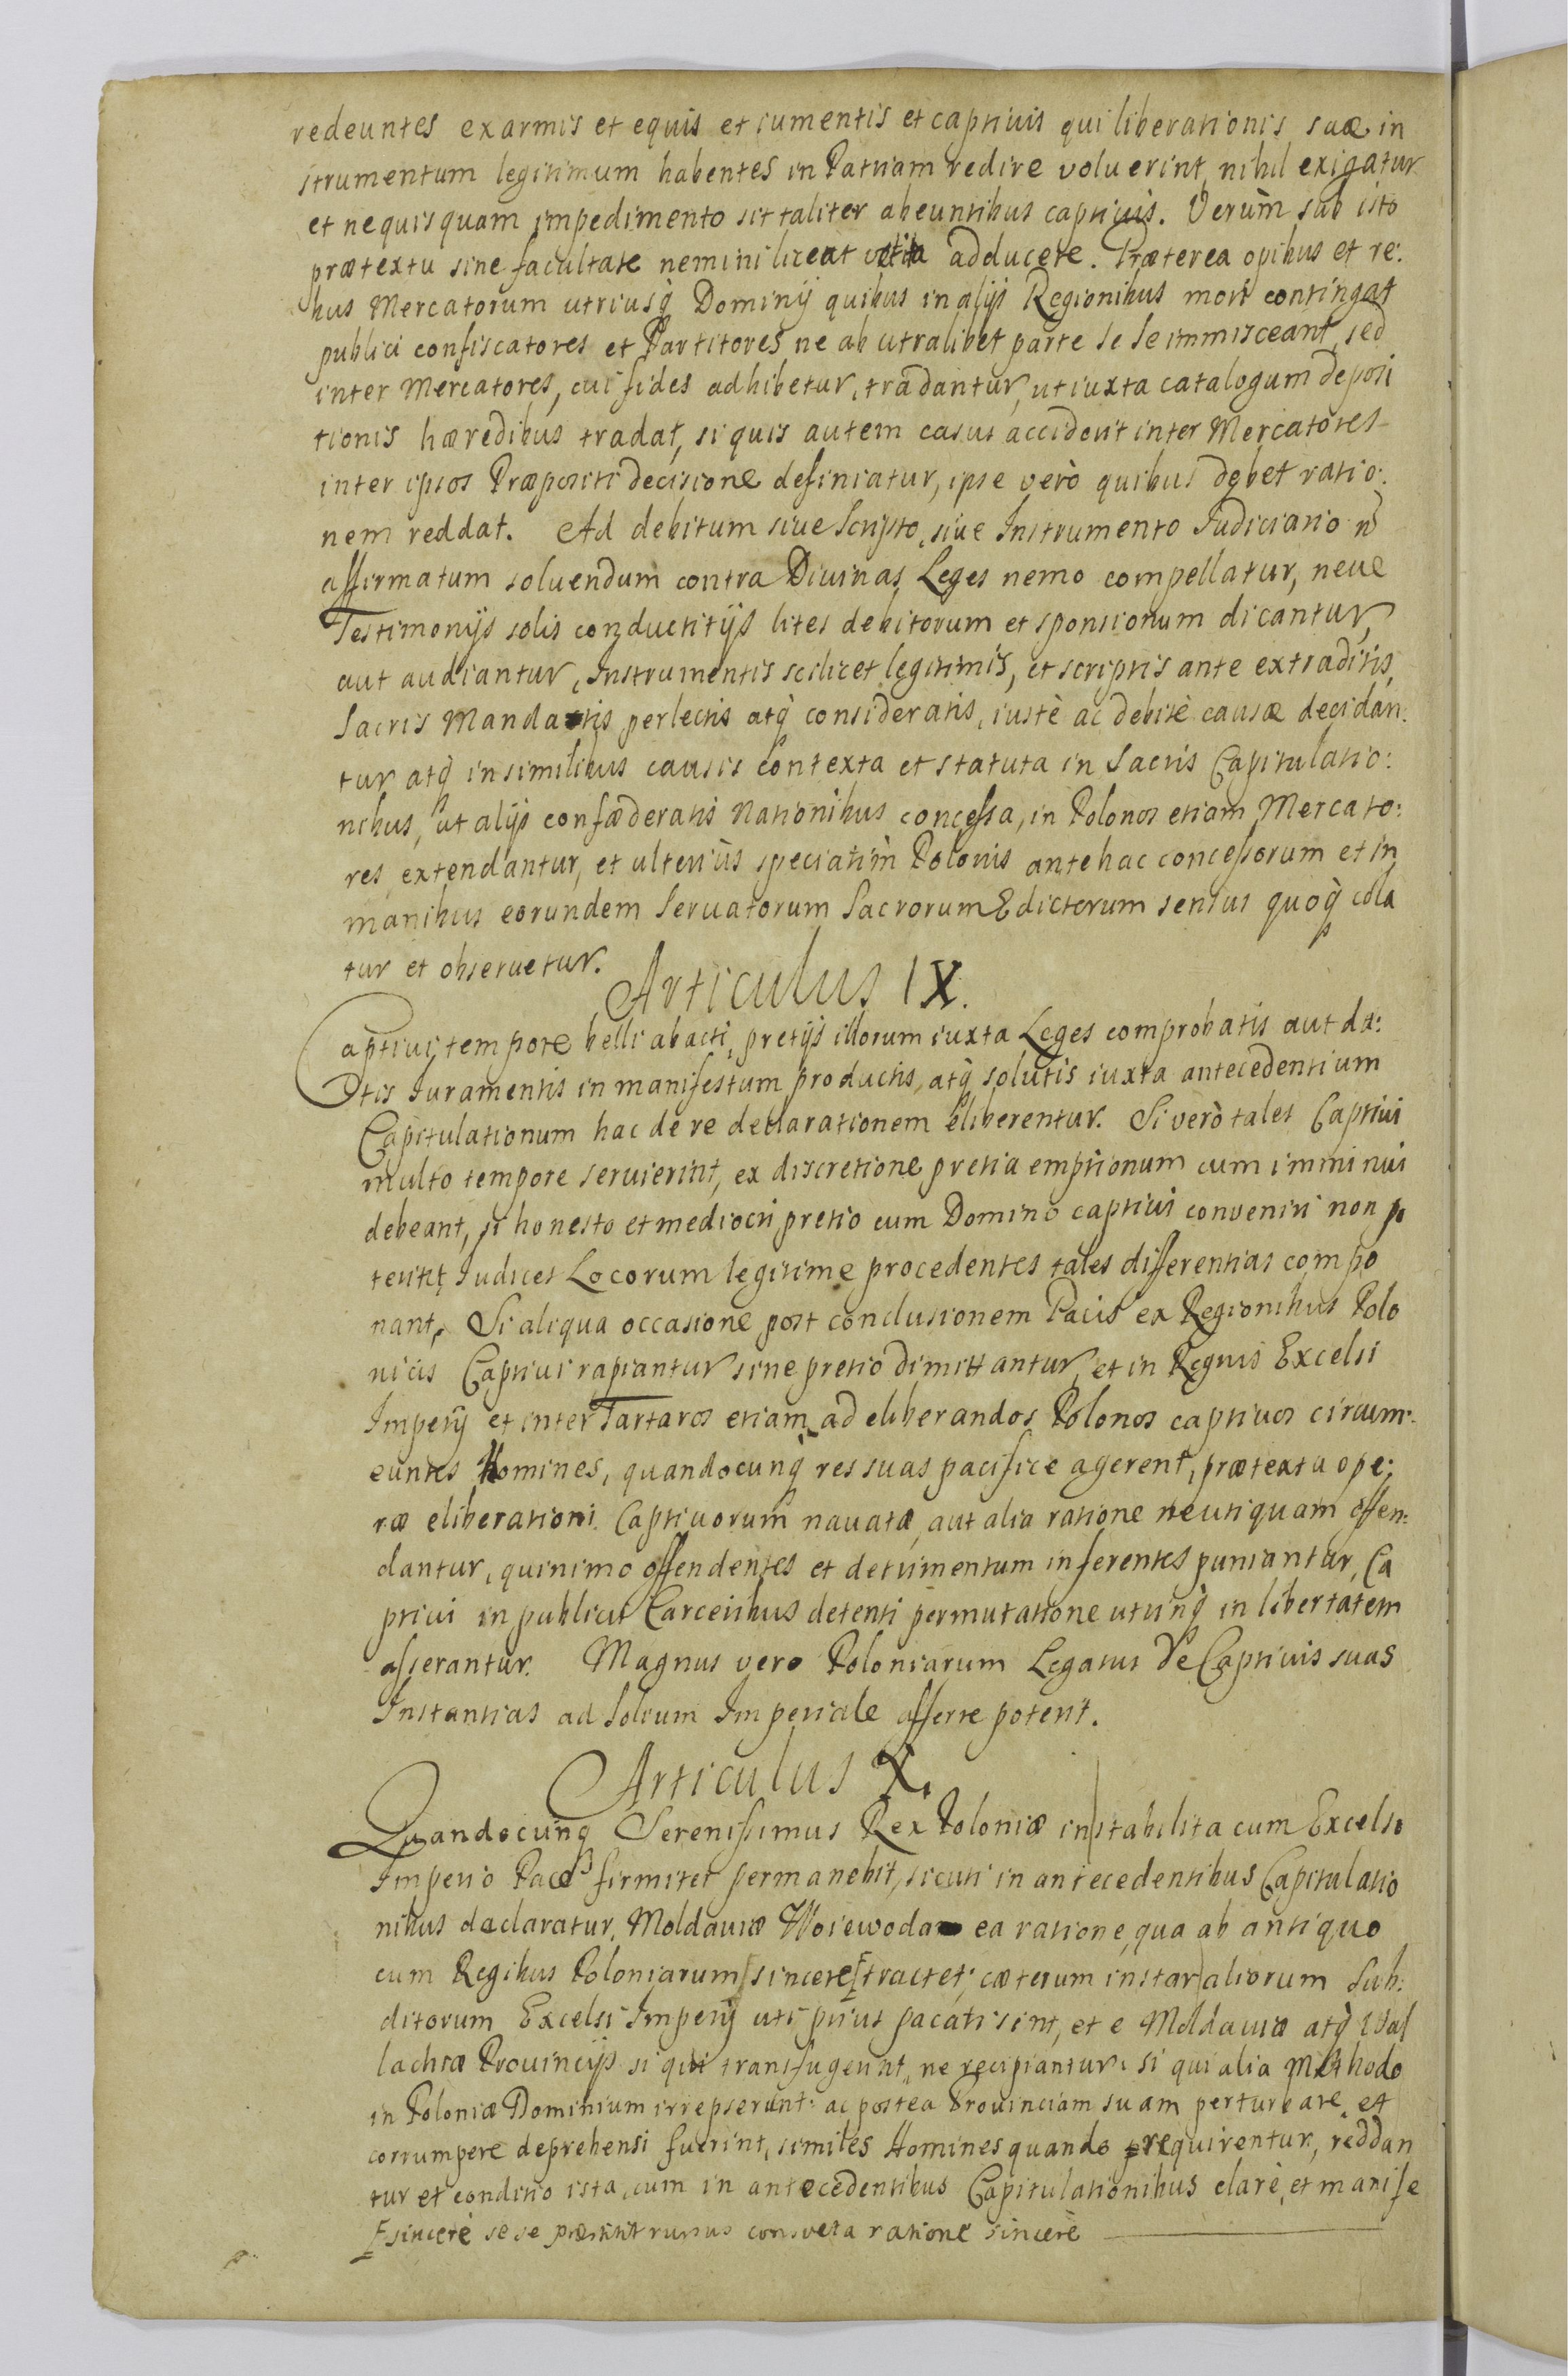 redeuntes ex armis et equis et iumentis et captiuis qui liberationis suæ in
strumentum legitimum habentes in Patriam redire voluerint, nihil exigatur
et ne quisquam impedimento sit taliter abeuntibus captiuis. Verùm sub isto
prætextu sine facultate nemini liceat vetita adducere. Præterea opibus et re:
bus Mercatorum utriusq̀ Dominij quibus in alijs Regionibus mori contingat
publici confiscatores et Partitores ne ab utralibet parte se se immisceant, sed
inter Mercatores, cui fides adhibetur, tradantur, ut iuxta catalogum deposi
tionis hæredibus tradat, si quis autem casus acciderit inter Mercatores
inter ipsos Præpositi decisione definiatur, ipse verò quibus debet ratio:
nem reddat. Ad debitum siue Scripto, siue Instrumento Iudiciario n̄
affirmatum soluendum contra Diuinas Leges nemo compellatur, neue
Testimonijs solis conductitijs lites debitorum et sponsionum dicantur,
aut audiantur, Instrumentis scilicet legitimis, et scriptis ante extraditis,
Sacris Mandatis perlectis atq̀ consideratis, iustè ac debitè causæ decidan:
tur atq̀ in similibus causis contexta et statuta in Sacris Capitulatio:
nibus, ut alijs confæderatis Nationibus concessa, in Polonos etiam Mercato:
res extendantur, et ulteriùs speciatìm Polonis antehac concessorum et in
manibus eorundem Seruatorum Sacrorum Edictorum sensus quoq̀ cola
tur et obseruetur.
Articulus IX.
Captiui tempore belli abacti, pretijs illorum iuxta Leges comprobatis aut da:
tis Iuramentis in manifestum productis, atq̀ solutis iuxta antecedentium
Capitulationum hac de re declarationem eliberentur. Si verò tales Captiui
multo tempore seruierint, ex discretione pretia emptionum cum imminui
debeant, si honesto et mediocri pretio cum Domino captiui conveniri non po
terint, Iudices Locorum legitime procedentes tales differentias compo
nant. Si aliqua occasione post conclusionem Pacis ex Regionibus Polo
nicis Captiui rapiantur sine pretio dimittantur, et in Regnis Excelsi
Imperij et inter Tartaros etiam ad eliberandos Polonos captiuos circum:
euntes Homines, quandocunq̀ res suas pacifice agerent, prætextu ope:
ræ eliberationi Captiuorum nauatæ, aut alia ratione neutiquam offen:
dantur, quinimo offendentes et detrimentum inferentes puniantur, Ca
ptiui in publicis Carceribus detenti permutatione utrinq̀ in libertatem
asserantur. Magnus vero Poloniarum Legatus de Captiuis suas
Instantias ad Solium Imperiale afferre poterit.
Articulus X.
Quandocunq Serenissimus Rex Poloniæ in stabilita cum Excelso
Imperio Pace firmiter permanebit, sicuti in antecedentibus Capitulatio
nibus declaratur, Moldauiæ Woiewoda ea ratione, qua ab antiquo
cum Regibus Poloniarum sincere tractet; cæterum instar aliorum Sub:
ditorum Excelsi Imperij uti priùs pacati sint, et e Moldauiæ atq̀ Wal
lachiæ Prouincijs si qui transfugerint, ne recipiantur, si qui alia Methodo
in Poloniæ Dominium irrepserint ac postea Prouinciam suam perturbare et
corrumpere deprehensi fuerint, similes Homines quando requirentur, reddan
tur et conditio ista, cum in antecedentibus Capitulationibus clarè, et manife
sincerè se se præstitit rursus consveta ratione sincerè